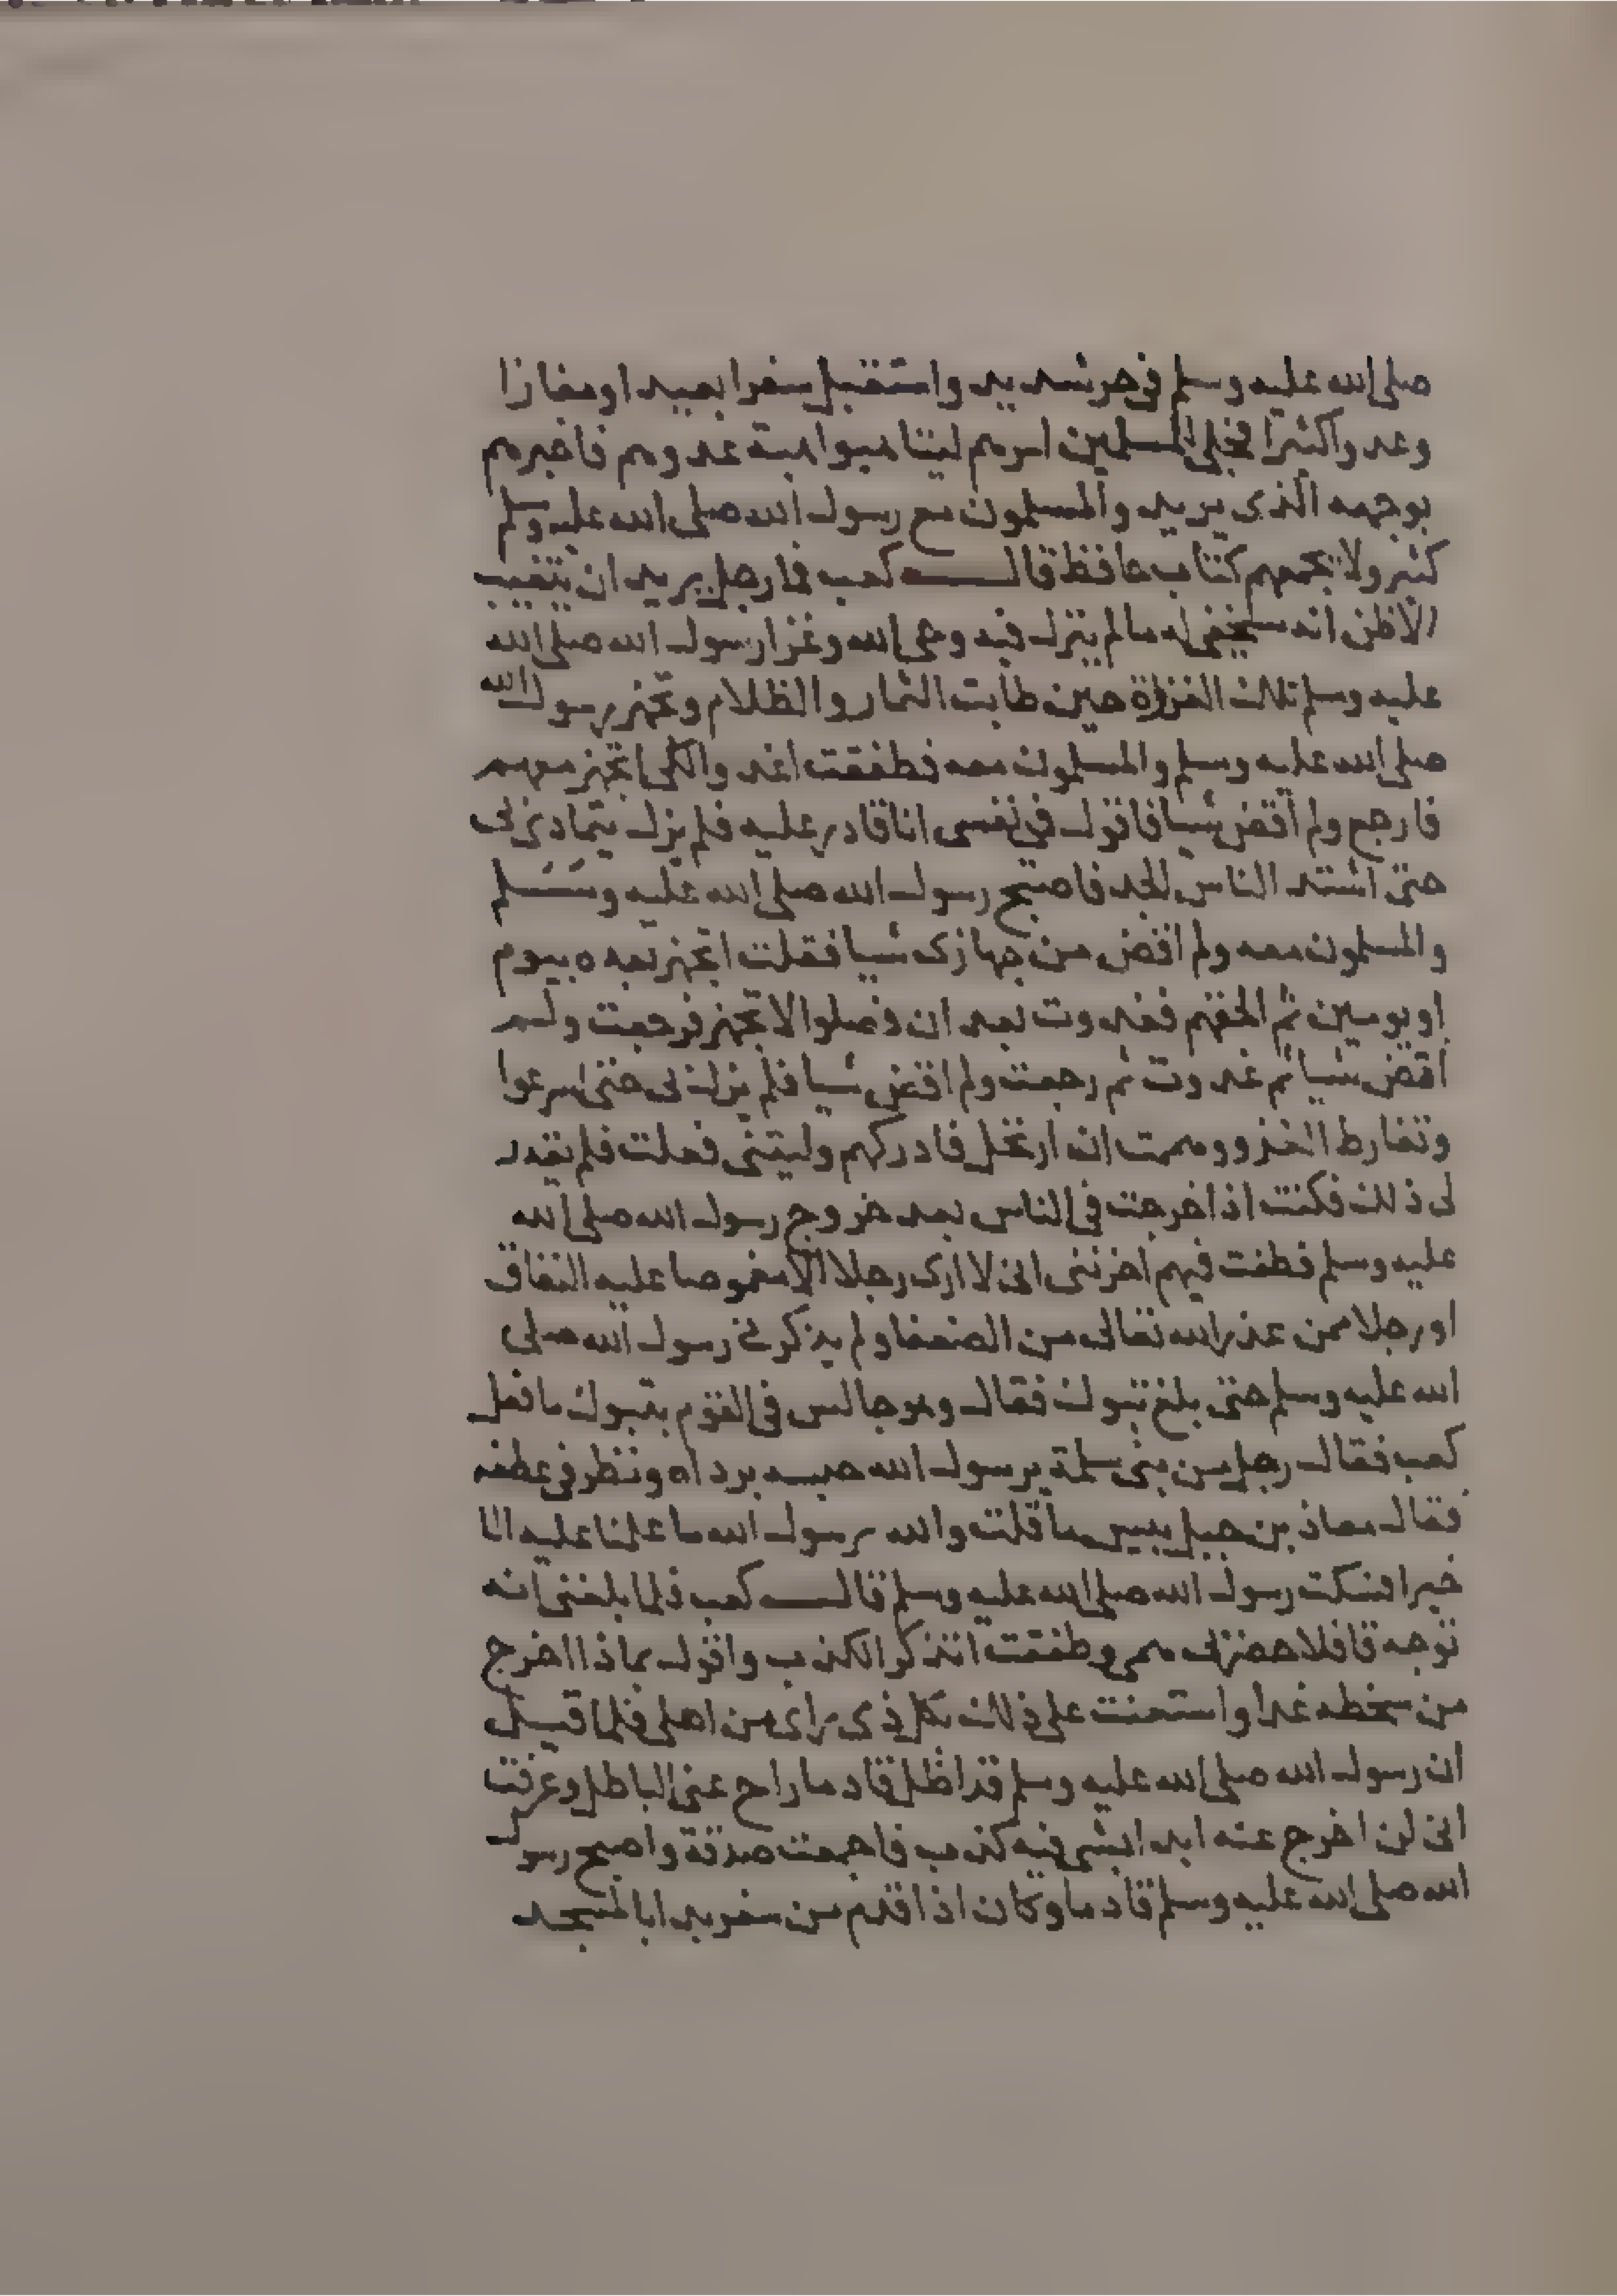 صلى الله عليه وسلم في حر شديد واستقبل سفرا بعيدا ومفازا
وعدوا كثيرا فجلى للمسلمين امرهم ليتاهبوا اهبة عدوهم فاخبرهم
بوجهه الذي يريد والمسلمون مع رسول الله صلى الله عليه وسلم
كثير ولا يجمعهم كتاب حافظ قال كعب فما رجل يريد ان يتغيب
الا ظن انه سيخفى له مالم ينزل فيه وحي الله وغزا رسول الله صلى الله
عليه وسلم تلك الغزوة حين طابت الثمار والظلام وتجهز رسول الله
صلى الله عليه وسلم والمسلمون معه فطفقت اغد والكي اتجهز معهم
فارجع ولم اقض شيا فاقول في نفسي انا قادر عليه فلم يزل يتمادى بى
حتى اشتد الناس الجد فاصبح رسول الله صلى الله عليه وسلم
والمسلمون معه ولم اقض من جهازى شيا فقلت اتجهز بعده بيوم
او يومين ثم الحقهم فغدوت بعد ان فصلوا لاتجهز فرجعت ولم
اقض شيا ثم غدوت ثم رجعت ولم اقض شيا فلم يزل بى حتى اسرعوا
وتفارط الغزو وهممت ان ارتحل فادركهم وليتنى فعلت فلم يقدر
لى ذلك فكنت اذا خرجت في الناس بعد خروج رسول الله صلى الله
عليه وسلم فطفت فيهم احزننى انى لا ارى رجلا الا مغموصا عليه النفاق
او رجلا ممن عذر الله تعالى من الضعفا ولم يذكرنى رسول الله صلى
الله عليه وسلم حتى بلغ تبوك فقال وهو جالس في القوم بتبوك ما فعل
كعب فقال رجل من بنى سلمة يرسول الله حبسه برداه ونظر في عطفه
فقال معاذ بن جبل بيس ما قلت والله يرسول الله ما علمنا عليه الا
خيرا فسكت رسول الله صلى الله عليه وسلم قال كعب فلما بلغنى انه
توجه قافلا حضرنى همى وطفقت اتذكر الكذب واقول بماذا اخرج
من سخطه غدا واستعنت على ذلك بكل ذى راى من اهلى فلما قيل
ان رسول الله صلى الله عليه وسلم قد اظل قادما راح عنى الباطل وعرفت
انى لن اخرج عنه ابدا بشى فيه كذب فاجمعت صدقة واصبح رسول
الله صلى الله عليه وسلم قادما وكان اذا قدم من سفر بدا بالمسجد